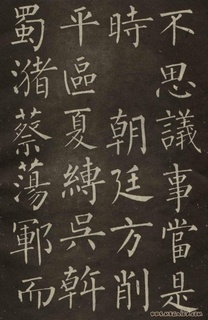 不思議事當是
時 朝廷方削
平區夏縛吳斡
蜀瀦蔡蕩鄆而